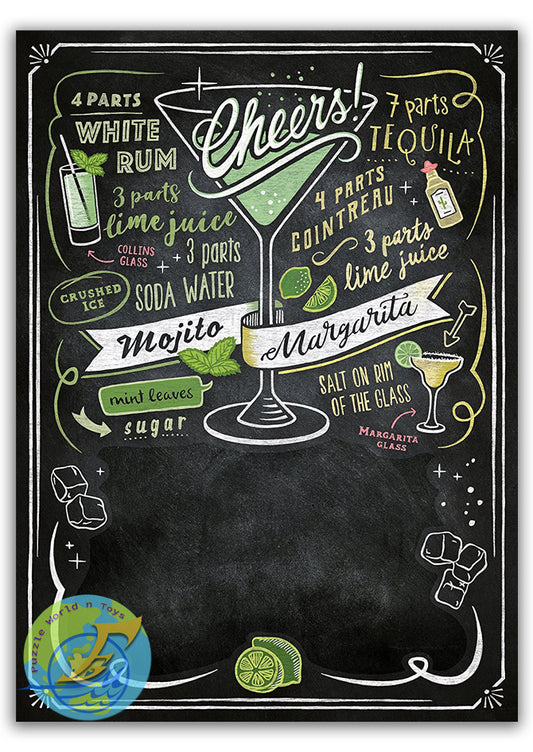 Cheers!
4 PARTS
WHITE
RUM
3 parts
lime juice
COLLINS
GLASS
+ 3 parts
SODA WATER
CRUSHED
ICE
Mojito
mint leaves
sugar
7 parts
TEQUILA
4 PARTS
COINTREAU
3 parts
lime juice
Margarita
SALT ON RIM
OF THE GLASS
MARGARITA
GLASS
Puzzle World n Toys